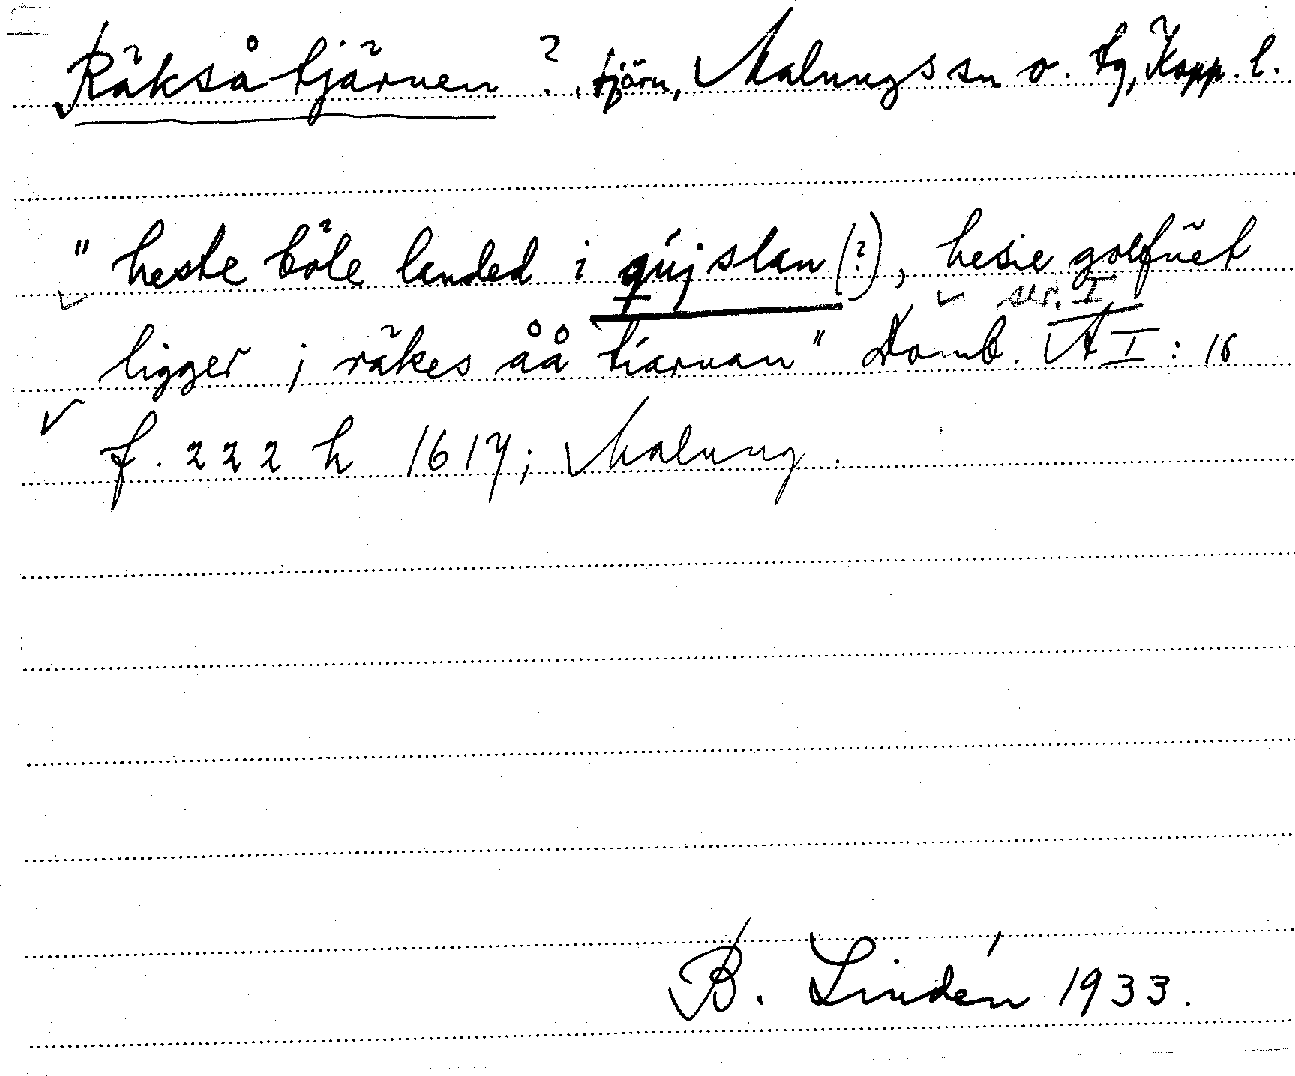 Räksåtjärnen ?, tjärn, Malungs sn o. tg, Kopp. l.
"heste böle landed i qüjslan (?), hesie golfüet
ser. I
ligger j räkes åå tiarnan" Domb. A I : 16
f. 222 h 1617; Malung.
B. Lindén 1933.